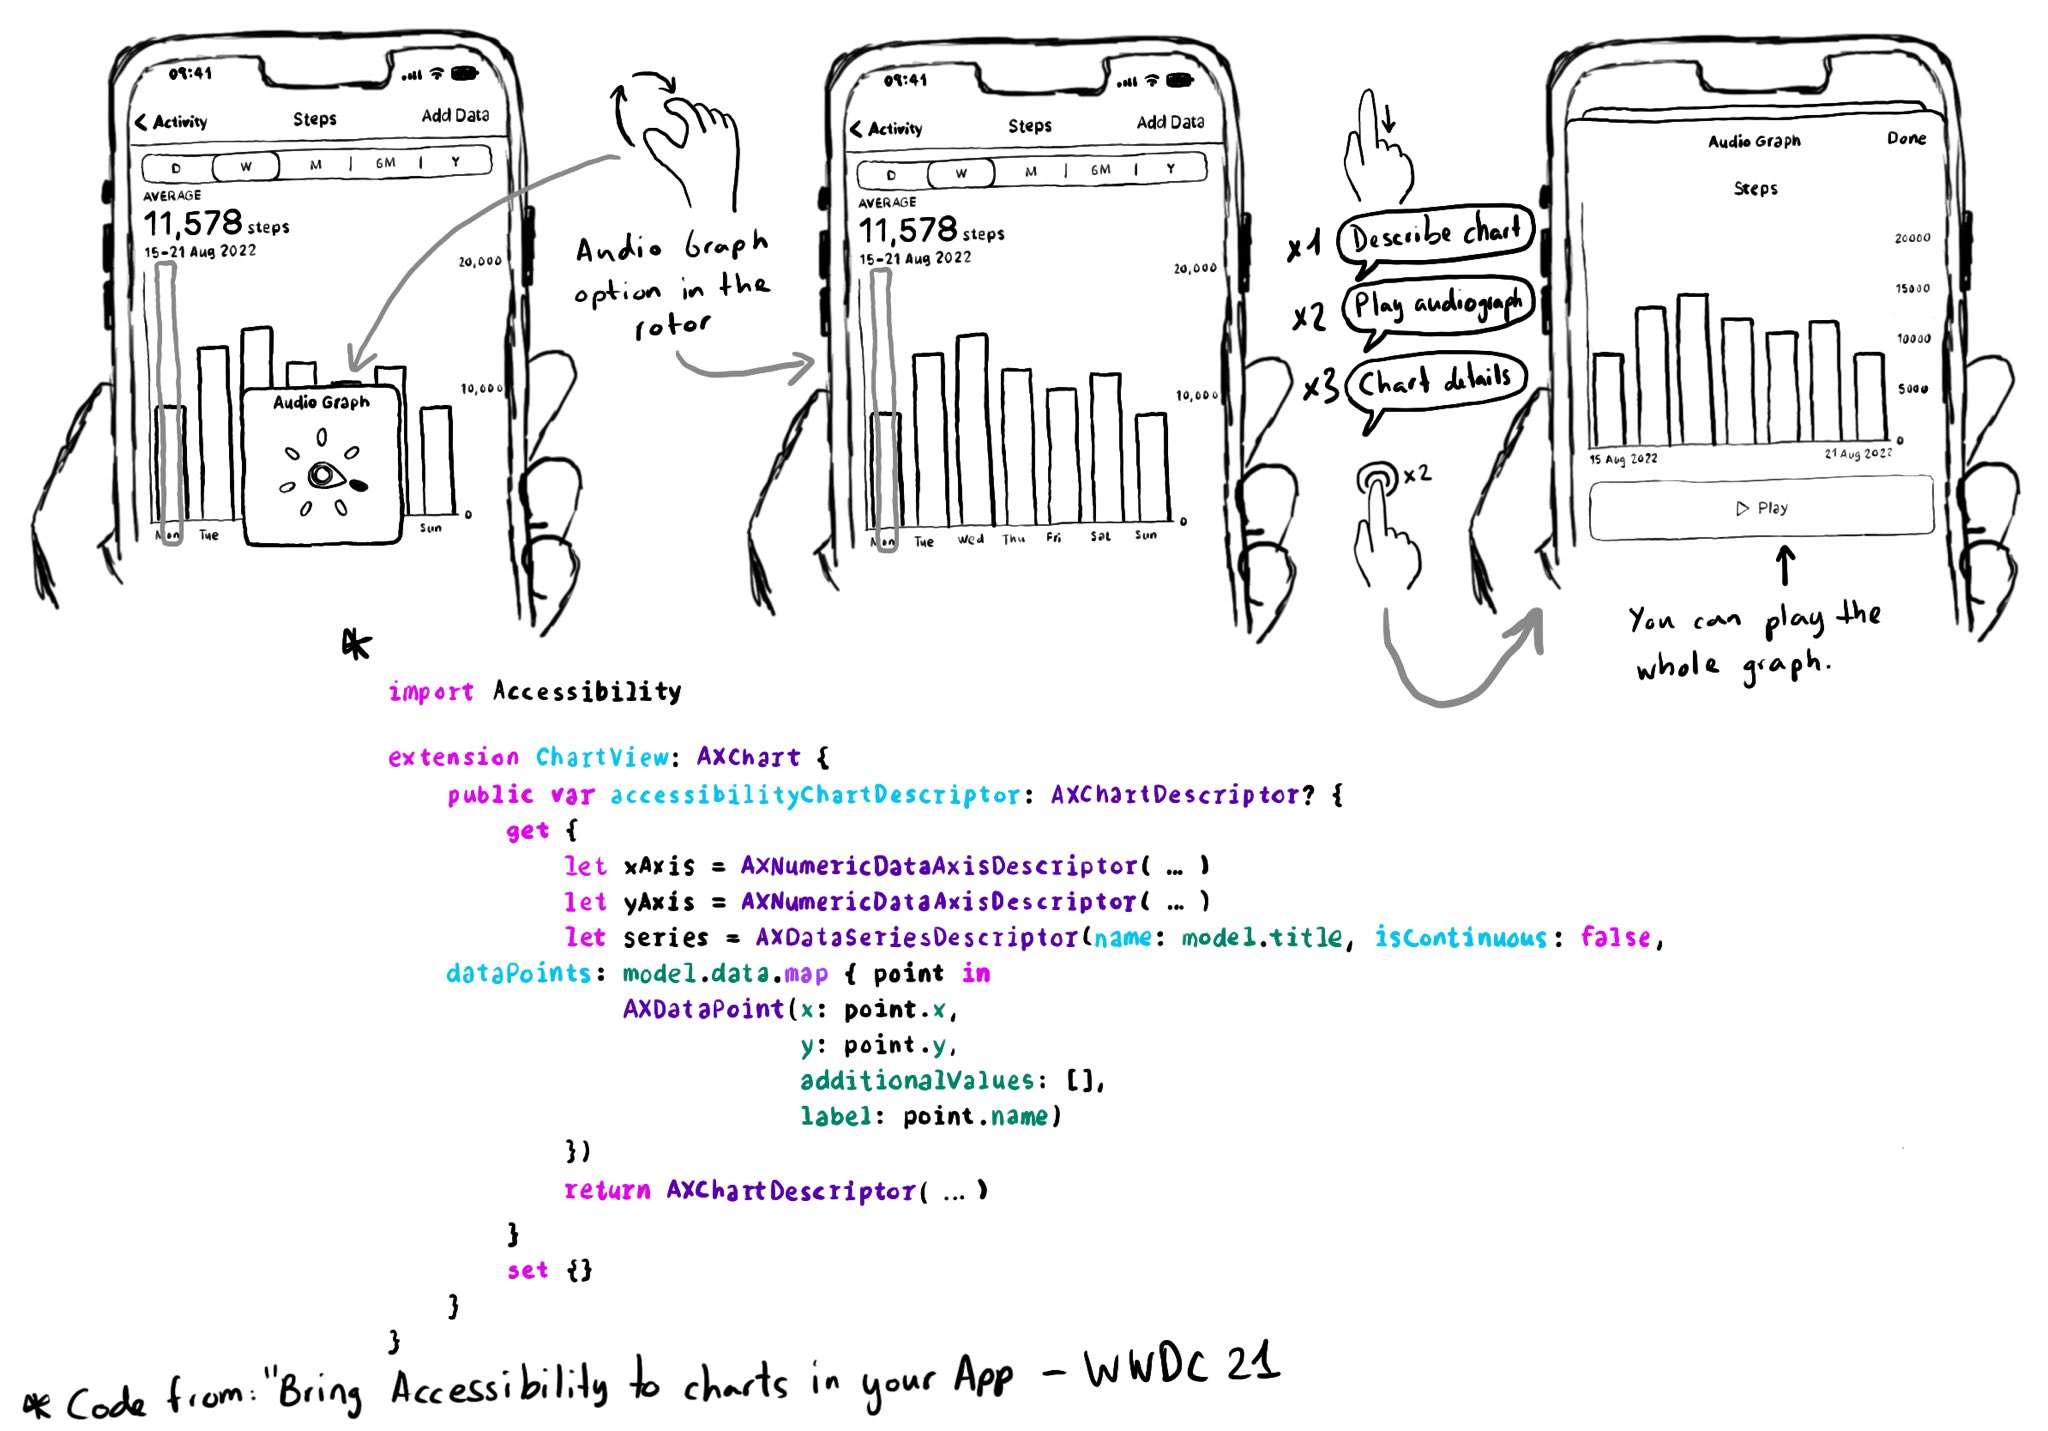 09:41
< Activity
Steps
Add Data
D
W
M
6M
Y
AVERAGE
11,578 steps
15-21 Aug 2022
20,000
10,000
0
Audio Graph
Mon
Tue
Sun
Audio Graph
option in the
rotor
09:41
< Activity
Steps
Add Data
D
W
M
6M
Y
AVERAGE
11,578 steps
15-21 Aug 2022
20,000
10,000
0
Mon
Tue
Wed
Thu
Fri
Sat
Sun
x1 Describe chart
x2 Play audiograph
x3 Chart details
x2
Audio Graph
Done
Steps
20000
15000
10000
5000
0
15 Aug 2022
21 Aug 2022
Play
You can play the
whole graph.
*
import Accessibility
extension ChartView: AXChart {
public var accessibilityChartDescriptor: AXChartDescriptor? {
get {
let xAxis = AXNumericDataAxisDescriptor( ... )
let yAxis = AXNumericDataAxisDescriptor( ... )
let series = AXDataSeriesDescriptor(name: model.title, isContinuous: false,
dataPoints: model.data.map { point in
AXDataPoint(x: point.x,
y: point.y,
additionalValues: [],
label: point.name)
})
return AXChartDescriptor( ... )
}
set {}
}
}
* Code from: "Bring Accessibility to charts in your App - WWDC 21